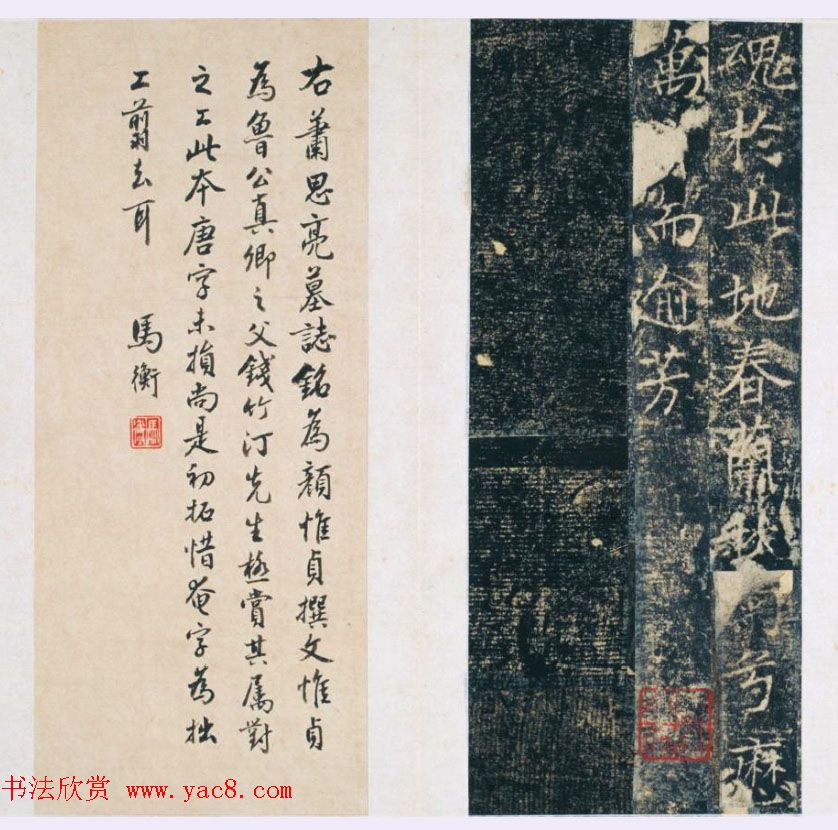 魂於此地春蘭秋菊兮歷
萬 而逾芳
右蕭思亮墓誌銘為顏惟貞撰文惟貞
為魯公真卿之父錢竹汀先生極賞其属對
之工此本唐字未損尚是初拓惜奄字為拙
工翦去耳 馬衡
书法欣赏 www.yac8.com